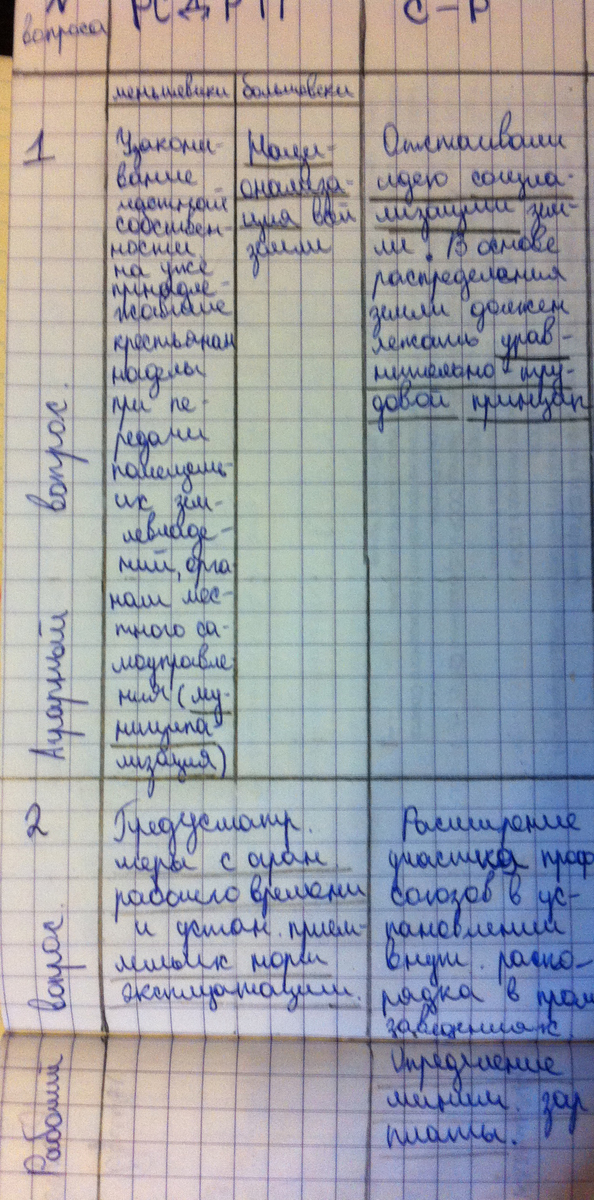 №
вопроса
РСДРП
С-Р
меньшевики
большевики
1
Аграрный вопрос.
Узакони-
вание
частной
собствен-
ности
на уже
принадле-
жавшие
крестьянам
наделы
при пе-
редачи
помещичь-
их зем-
левладе-
ний, орга
нам мес-
тного са-
моуправле
ния (му-
ниципа-
лизация)
Наци-
онализа-
ция всей
земли
Отстаивали
идею социа-
лизации зем-
ли. В основе
распределения
земли должен
лежать урав-
нительно тру-
довой принцип
2
Рабочий вопрос.
Предусматр.
меры с огран
рабочего времени
и устан. прием-
лемых норм
эксплуатации.
Расширение
участка проф
союзов в ус-
тановлении
внутр. распо-
рядка в пром
заведениях.
Определение
миним. зар
платы.